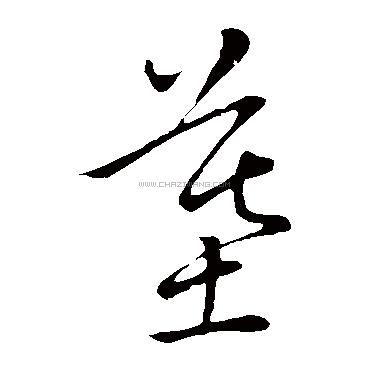 耋
WWW.CHAZIDIANG.COM